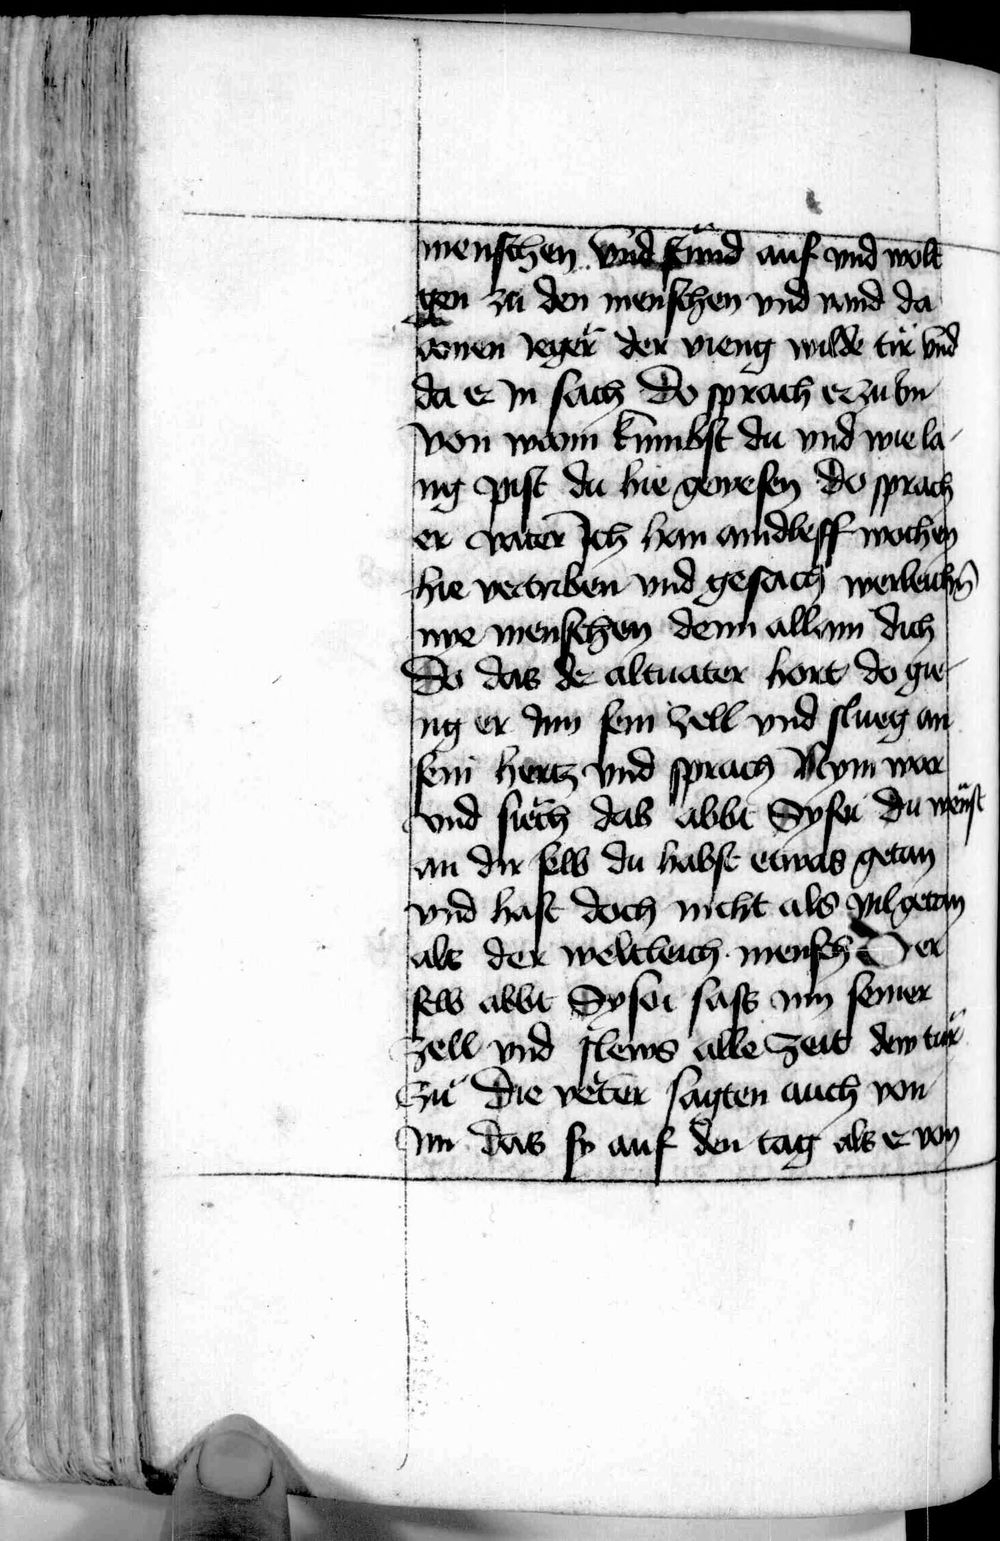 menschen vnd stund auf vnd wolt
gen zu den menschen vnd vand da
aonen Jeger der vieng wilde tir vnd
da er in sach Do sprach er zu im
Von waom kumbst du vnd wie la-
ng pist du hie gewesen Do sprach
er vater Ich han aindleff wochen
hie vertriben vnd gesach werleichn
nye menschen denn allain dich
Do das der altuater hort do gie-
ng er Inn sein zell vnd slueg an
sein hertz vnd sprach Nym war
vnd siech das abbt Sysoi Du wenst
an dir selb du habst etwas getan
vnd hast doch nicht als vil getan
als der weltleich mensch Der
selb abbt Sysoi sass inn seiner
zell vnd slews alle Zeit dew tür
zu Die veter sagten auch von
im das sy auf den tag als er von